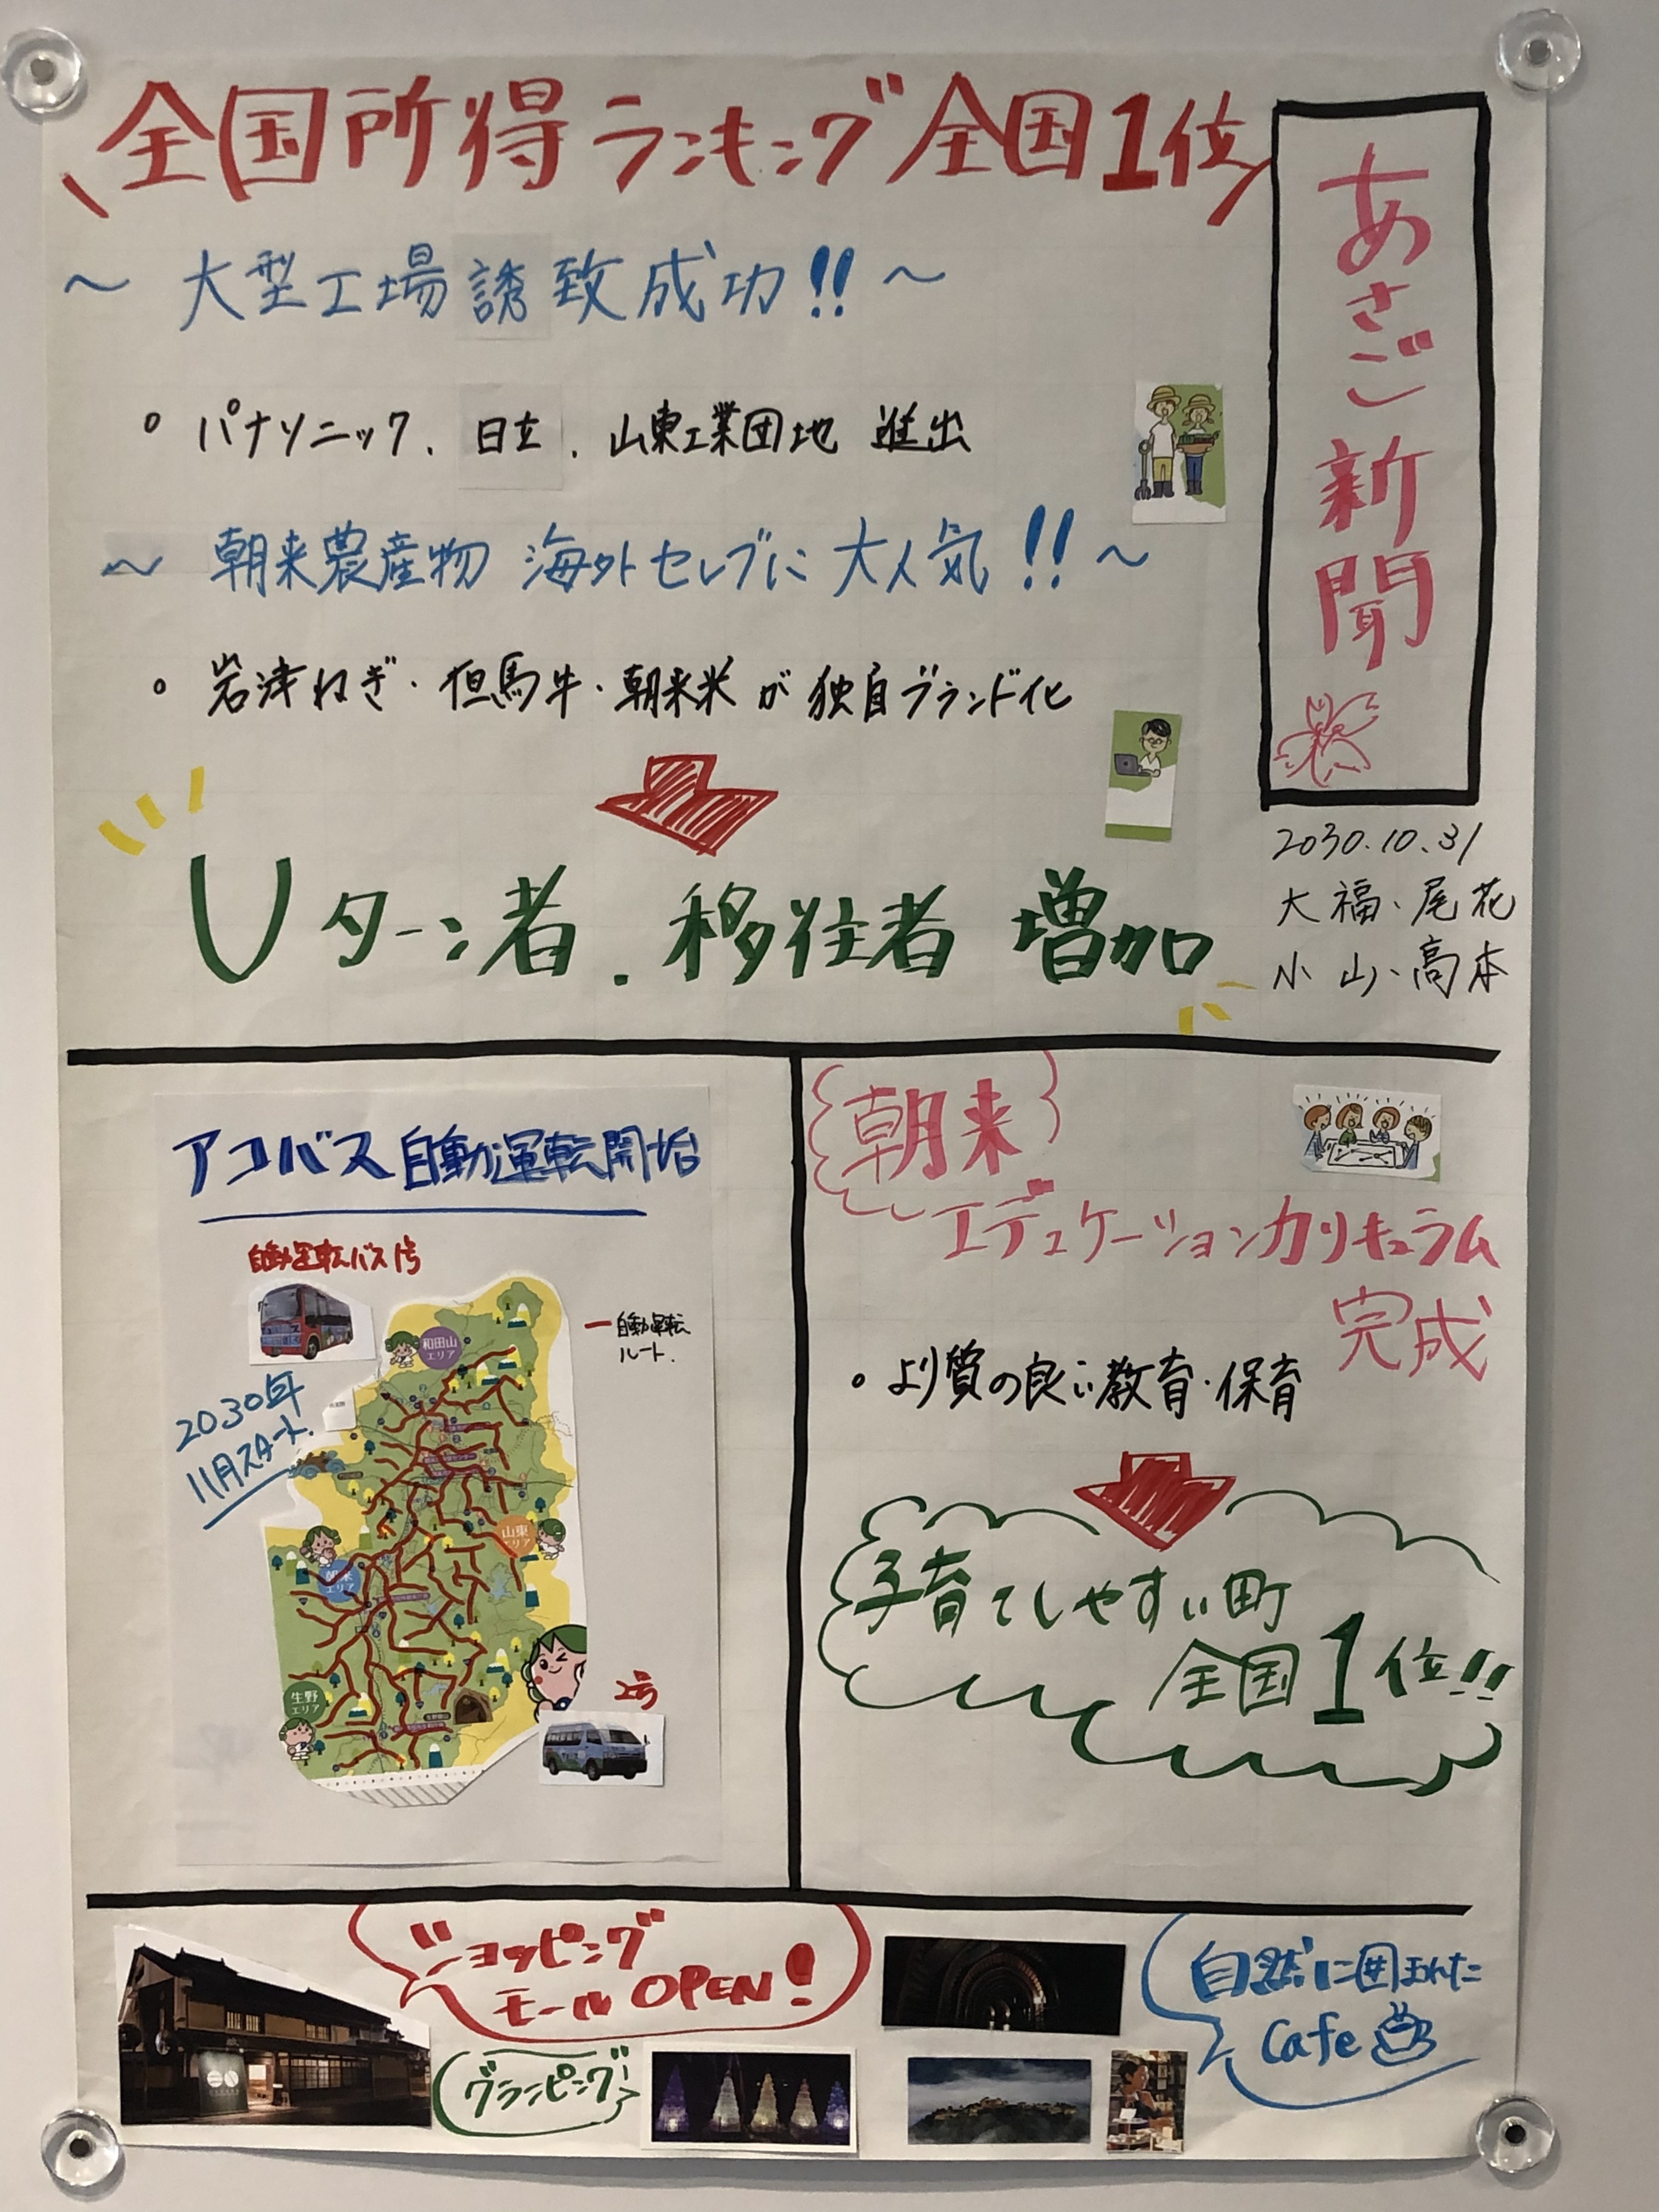 全国所得ランキング全国1位
あさご新聞
～大型工場誘致成功!!～
。パナソニック.日立.山東工業団地 進出
～朝来農産物 海外セレブに大人気!!～
。岩津ねぎ・但馬牛・朝来米が独自ブランド化
Uターン者.移住者 増加
2030.10.31
大福・尾花
小山・高本
アコバス自動運転開始
自動運転バス1号
自動運転
ルート.
2030年
11月スタート.
和田山
エリア
山東
エリア
朝来
エリア
生野
エリア
2号
朝来
エデュケーションカリキュラム
完成
。より質の良い教育・保育
子育てしやすい町
全国1位!!
ショッピング
モールOPEN!
グランピング
自然に囲まれた
Cafe